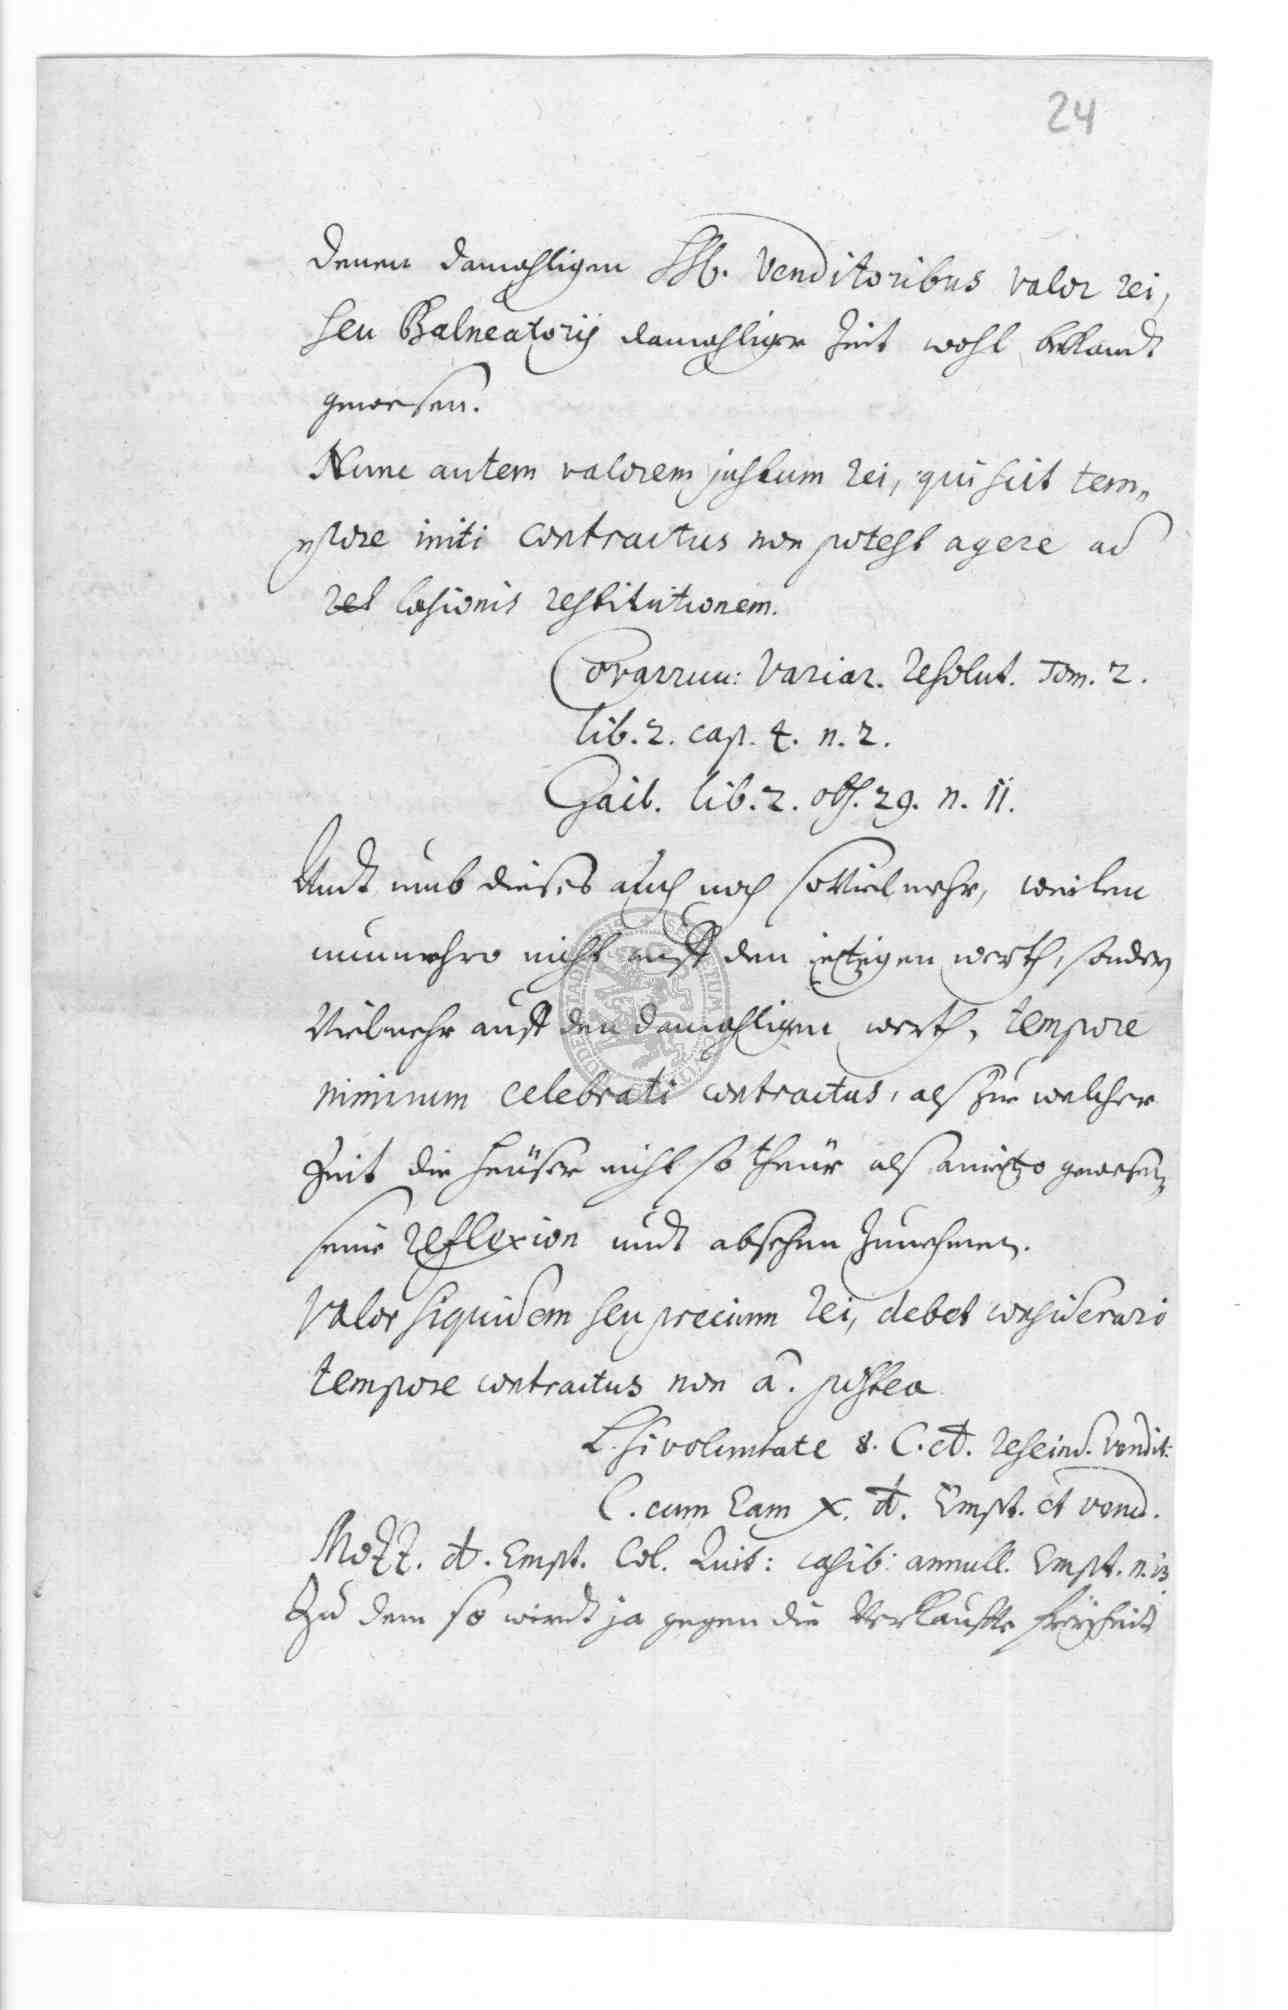 24
denen damahligen HH. Venditoribus valor rei,
seu Balneatorij damahliger Zeit wohl bekandt
gewesen.
Nunc autem valorem justum rei, qui scit tem„
„pore initi contractus non potest agere ad
læsionis restitutionem.
Covarruu: Variar. resolut. Tom. 2.
lib. 2. cap. 4. n. 2.
Gail. lib. 2. obs. 29. n. 11.
Undt umb dieses auch noch so Vielmehr, weilen
nunmehro nicht auff den ietzigen werth, sondern
Vielmehr auff den damahligen werth, tempore
nimirum celebrati contractus, alß Zue welcher
Zeit die heüser nicht so theür alß anietzo gewesen,
seine reflexion undt absehen Zunehmen.
Valor siquidem seu precium rei, debet considerari
tempore contractus non a. postea
L. si voluntate 8. C. de. rescind. vendit:
C. cum Eam X. de. Empt. et vend.
Mozz. de. Empt. Col. Quib: casib: annull. Empt. n. 13
Zu dem so wirdt ja gegen die Verkauffte freyheit